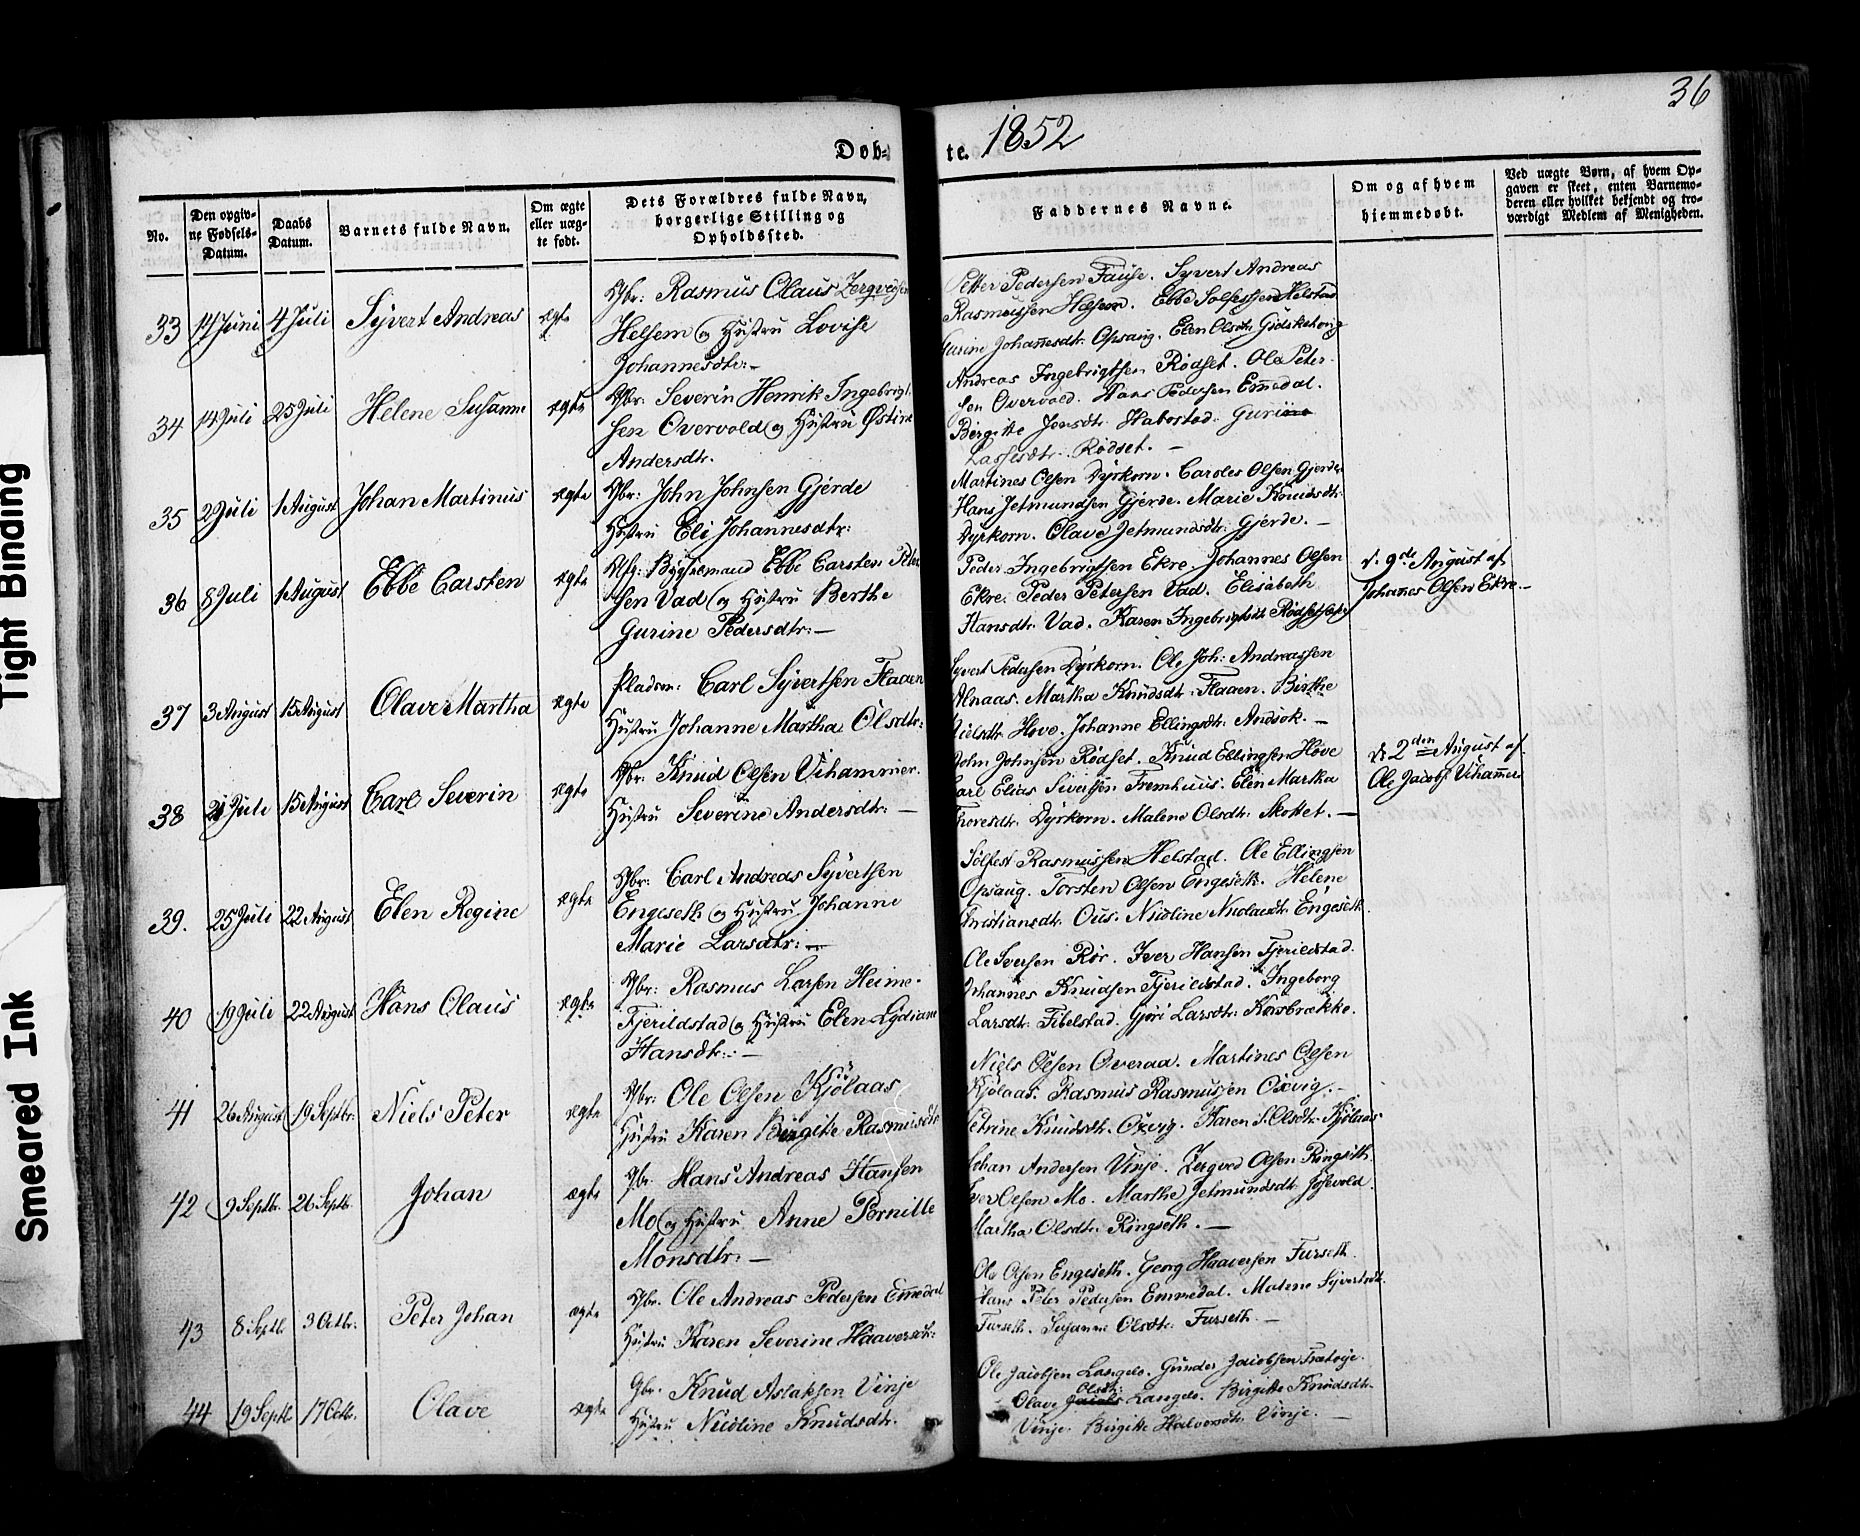 36
Døb-
te. 1852
No.
Den opgiv-
ne Fødsels-
Datum.
Daabs
Datum.
Barnets fulde Navn.
Om ægte
eller uæg-
te født.
Dets Forældres fulde Navn,
borgerlige Stilling og
Opholdssted.
Faddernes Navne.
Om og af hvem
hjemmedøbt.
Ved uægte Børn, af hvem Op-
gaven er skeet, enten Barnemo-
deren eller hvilket bekjendt og tro-
værdigt Medlem af Menigheden.
33 14 Juni 4 Juli Syvert Andreas ægte
Gbr: Rasmus Claus Zergvedsen
Helsem og Hustru Lovise
Johannesdtr:
Petter Pedersen Fause. Syvert Andreas
Rasmussen Helsem. Ebbe Solfestsen Helstad
Gurine Johannesdtr. Opsaug. Elen Olsdtr
34 14 Juli 25 Juli Helene Susanne ægte
Gbr: Severin Henrik Ingebrigt-
sen Overvold og Hustru Østine
Andersdtr.
Andreas Ingebrigtsen Rødset. Ole Peter-
sen Overvold. Hans Pedersen Emedal.
Birgitte Jensdtr. Habostad. Guri
Lassesdtr. Rødset. —
35 2 Juli 1 August Johan Martinus ægte
Gbr: John Johnsen Gjerde
Hustru Eli Johannesdtr:
Martines Olsen Dyrkorn. Caroles Olsen Gjerde
Hans Jetmundsen Gjerde. Marie Knudsdtr.
Dyrkorn. Olave Jetmundsdtr: Gjerde. —
36 8 Juli 1 August Ebbe Carsten ægte
Ebbe Carsten Peter
sen Vad og Hustru Berthe
Gurine Pedersdtr: —
Peder Ingebrigtsen Ekre. Johannes Olsen
Ekre. Peder Petersen Vad. Elisabeth
Hansdtr. Vad. Karen Ingebrigtsdtr
d. 9de August af
Johanes Olsen Ekre. —
37 3 August 15 August Olave Martha ægte
Pladsm: Carl Syvertsen Flaaen
Hustru Johanne Martha Olsdtr:
Syvert Pedersen Dyrkorn. Ole Joh: Andreassen
Alnaas. Martha Knudsdtr. Flaaen. Birthe
Nielsdtr. Hove. Johanne Ellingsdtr. Andsok. —
38 21 Juli 15 August Carl Severin ægte
Gbr: Knud Olsen Vihammer.
Hustru Severine Andersdtr: —
John Johnsen Rødset. Knud Ellingsen Hove
Carl Elias Sivertsen Fremhuus. Elen Martha
Thoresdtr. Dyrkorn. Malene Olsdtr. Skottet. —
d. 2den August af
Ole Jacobs. Vihammer
39. 25 Juli 22 August Elen Regine ægte
Gbr: Carl Andreas Syvertsen
Engeseth og Hustru Johanne
Marie Larsdtr: —
Solfest Rasmussen Helstad. Ole Ellingsen
Opsaug. Torsten Olsen Engeseth. Helene
Christiansdtr. Ous. Nicoline Nicolaidtr. Engeseth.
40 19 Juli 22 August Hans Olaus ægte
Gbr: Rasmus Larsen Heime-
Fjerildstad og Hustru Elen Lydiane
Hansdtr: —
Ole Iversen Rør. Iver Hansen Fjerildstad.
Johannes Knudsen Fjerildstad. Ingeborg
Larsdtr. Fibelstad. Gjøri Larsdtr: Korsbrække.
41 26 August 19 Septbr. Niels Peter ægte
Gbr: Ole Olsen Kjølaas
Hustru Karen Birgitte Rasmusdtr
Niels Olsen Overaa. Martines Olsen
Kjølaas. Rasmus Rasmussen Oxvig. —
Petrine Knudsdtr. Oxvig. Karen S. Olsdtr. Kjølaas.
42 9 Septbr. 26 Septb. Johan ægte
Gbr. Hans Andreas Hansen
Mo og Hustru Anne Pernille
Monsdtr: —
Johan Andersen Vinje. Zergved Olsen Ringseth.
Iver Olsen Mo. Marthe Jetmundsdtr.
Martha Olsdtr. Ringseth. —
43 8 Septb. 3 Octbr. Peter Johan ægte
Gbr. Ole Andreas Pedersen Emedal
Hustru Karen Severine Haaversdtr:
Ole Olsen Engeseth. Georg Haaversen Furseth.
Hans Peter Pedersen Emmedal. Malene Syvertsdtr.
Furseth. Susanne Olsdtr. Furseth. —
44 19 Septb. 17 Octb. Olave ægte
Gbr. Knud Aslaksen Vinje
Hustru Nicoline Knudsdtr.
Ole Jacobsen Langelo. Gunder Jacobsen Trætøje.
Olsdtr.
Olave Jacobs Langelo. Birgitte Knudsdtr.
Vinje. Birgitte Halvorsdtr. Vinje. —
Tight Binding
Smeared Ink